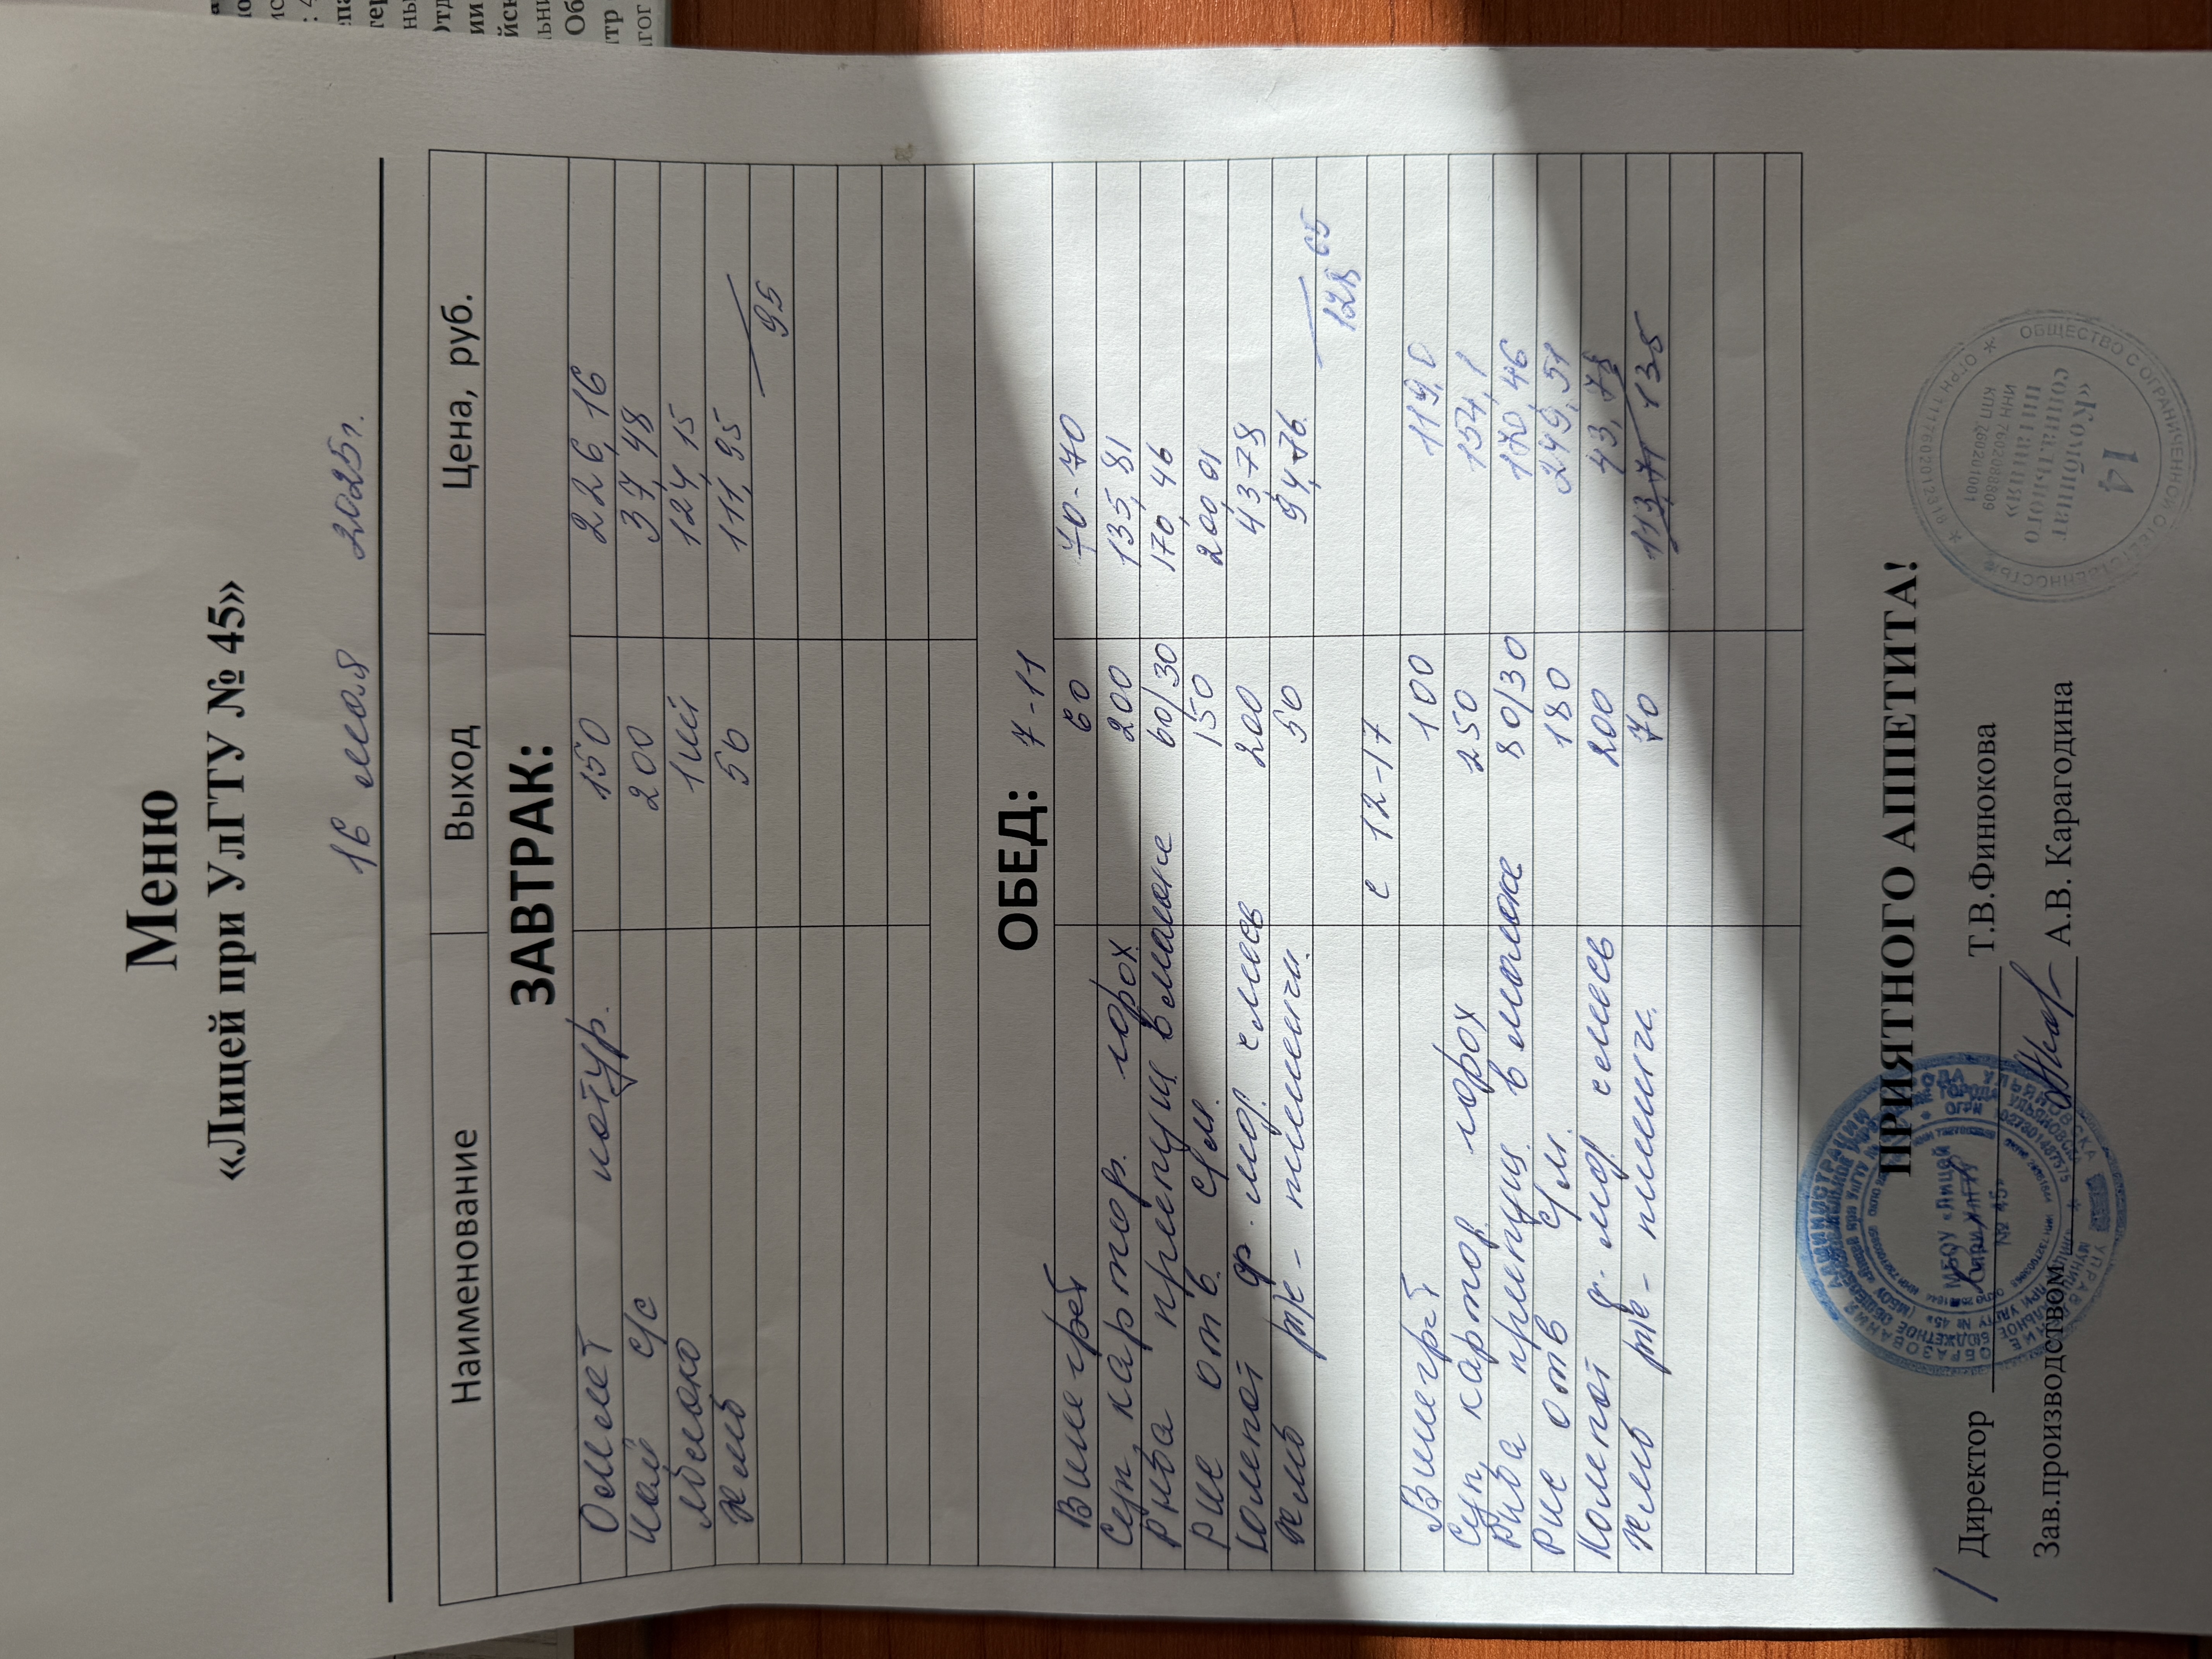 Меню
«Лицей при УлГТУ № 45»
16 мая 2025г.
Наименование Выход Цена, руб.
ЗАВТРАК:
Омлет натур. 150 226,16
Чай с/с 200 37,48
Яблоко 1шт 124,15
Хлеб 50 111,95
95
ОБЕД: 7-11
Винегрет 60 70-70
Суп картоф. горох. 200 135,81
Рыба припущ в молоке 60/30 170,46
Рис отв. с/м. 150 200,01
Компот ф.-яг. смесь 200 43-78
Хлеб рж-пшенич. 50 94,76
128 65
с 12-17
Винегрет 100 119,0
Суп картоф горох 250 154,1
Рыба припущ. в молоке 80/30 170,46
Рис отв с/м. 180 249,51
Компот смесь 200 43,78
Хлеб рж-пшенич. 70 113,71 135
ПРИЯТНОГО АППЕТИТА!
Директор Т.В.Финюкова
Зав.производством А.В. Карагодина
МБОУ «Лицей
при УлГТУ
№ 45»
ОБЩЕСТВО С ОГРАНИЧЕННОЙ ОТВЕТСТВЕННОСТЬЮ
«Комбинат
социального
питания»
14